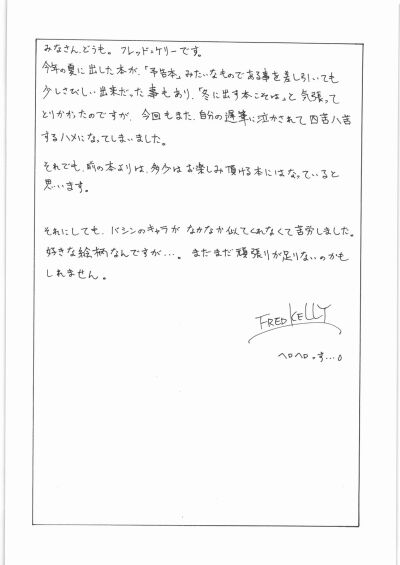 みなさん、どうも。フレッド・ケリーです。
今年の夏に出した本が、「予告本」みたいなものである事を差し引いても
少しさびしい出来だった事もあり、「冬に出す本こそは」と気張って
とりかかったのですが、今回もまた、自分の遅筆に泣かされて四苦八苦
するハメになってしまいました。
それでも、前の本よりは、多少はお楽しみ頂ける本にはなっていると
思います。
それにしても、バシンのキャラがなかなか似てくれなくて苦労しました。
好きな絵柄なんですが…。まだまだ頑張りが足りないのかも
しれません。
FRED KELLY
ヘロヘロっす…。